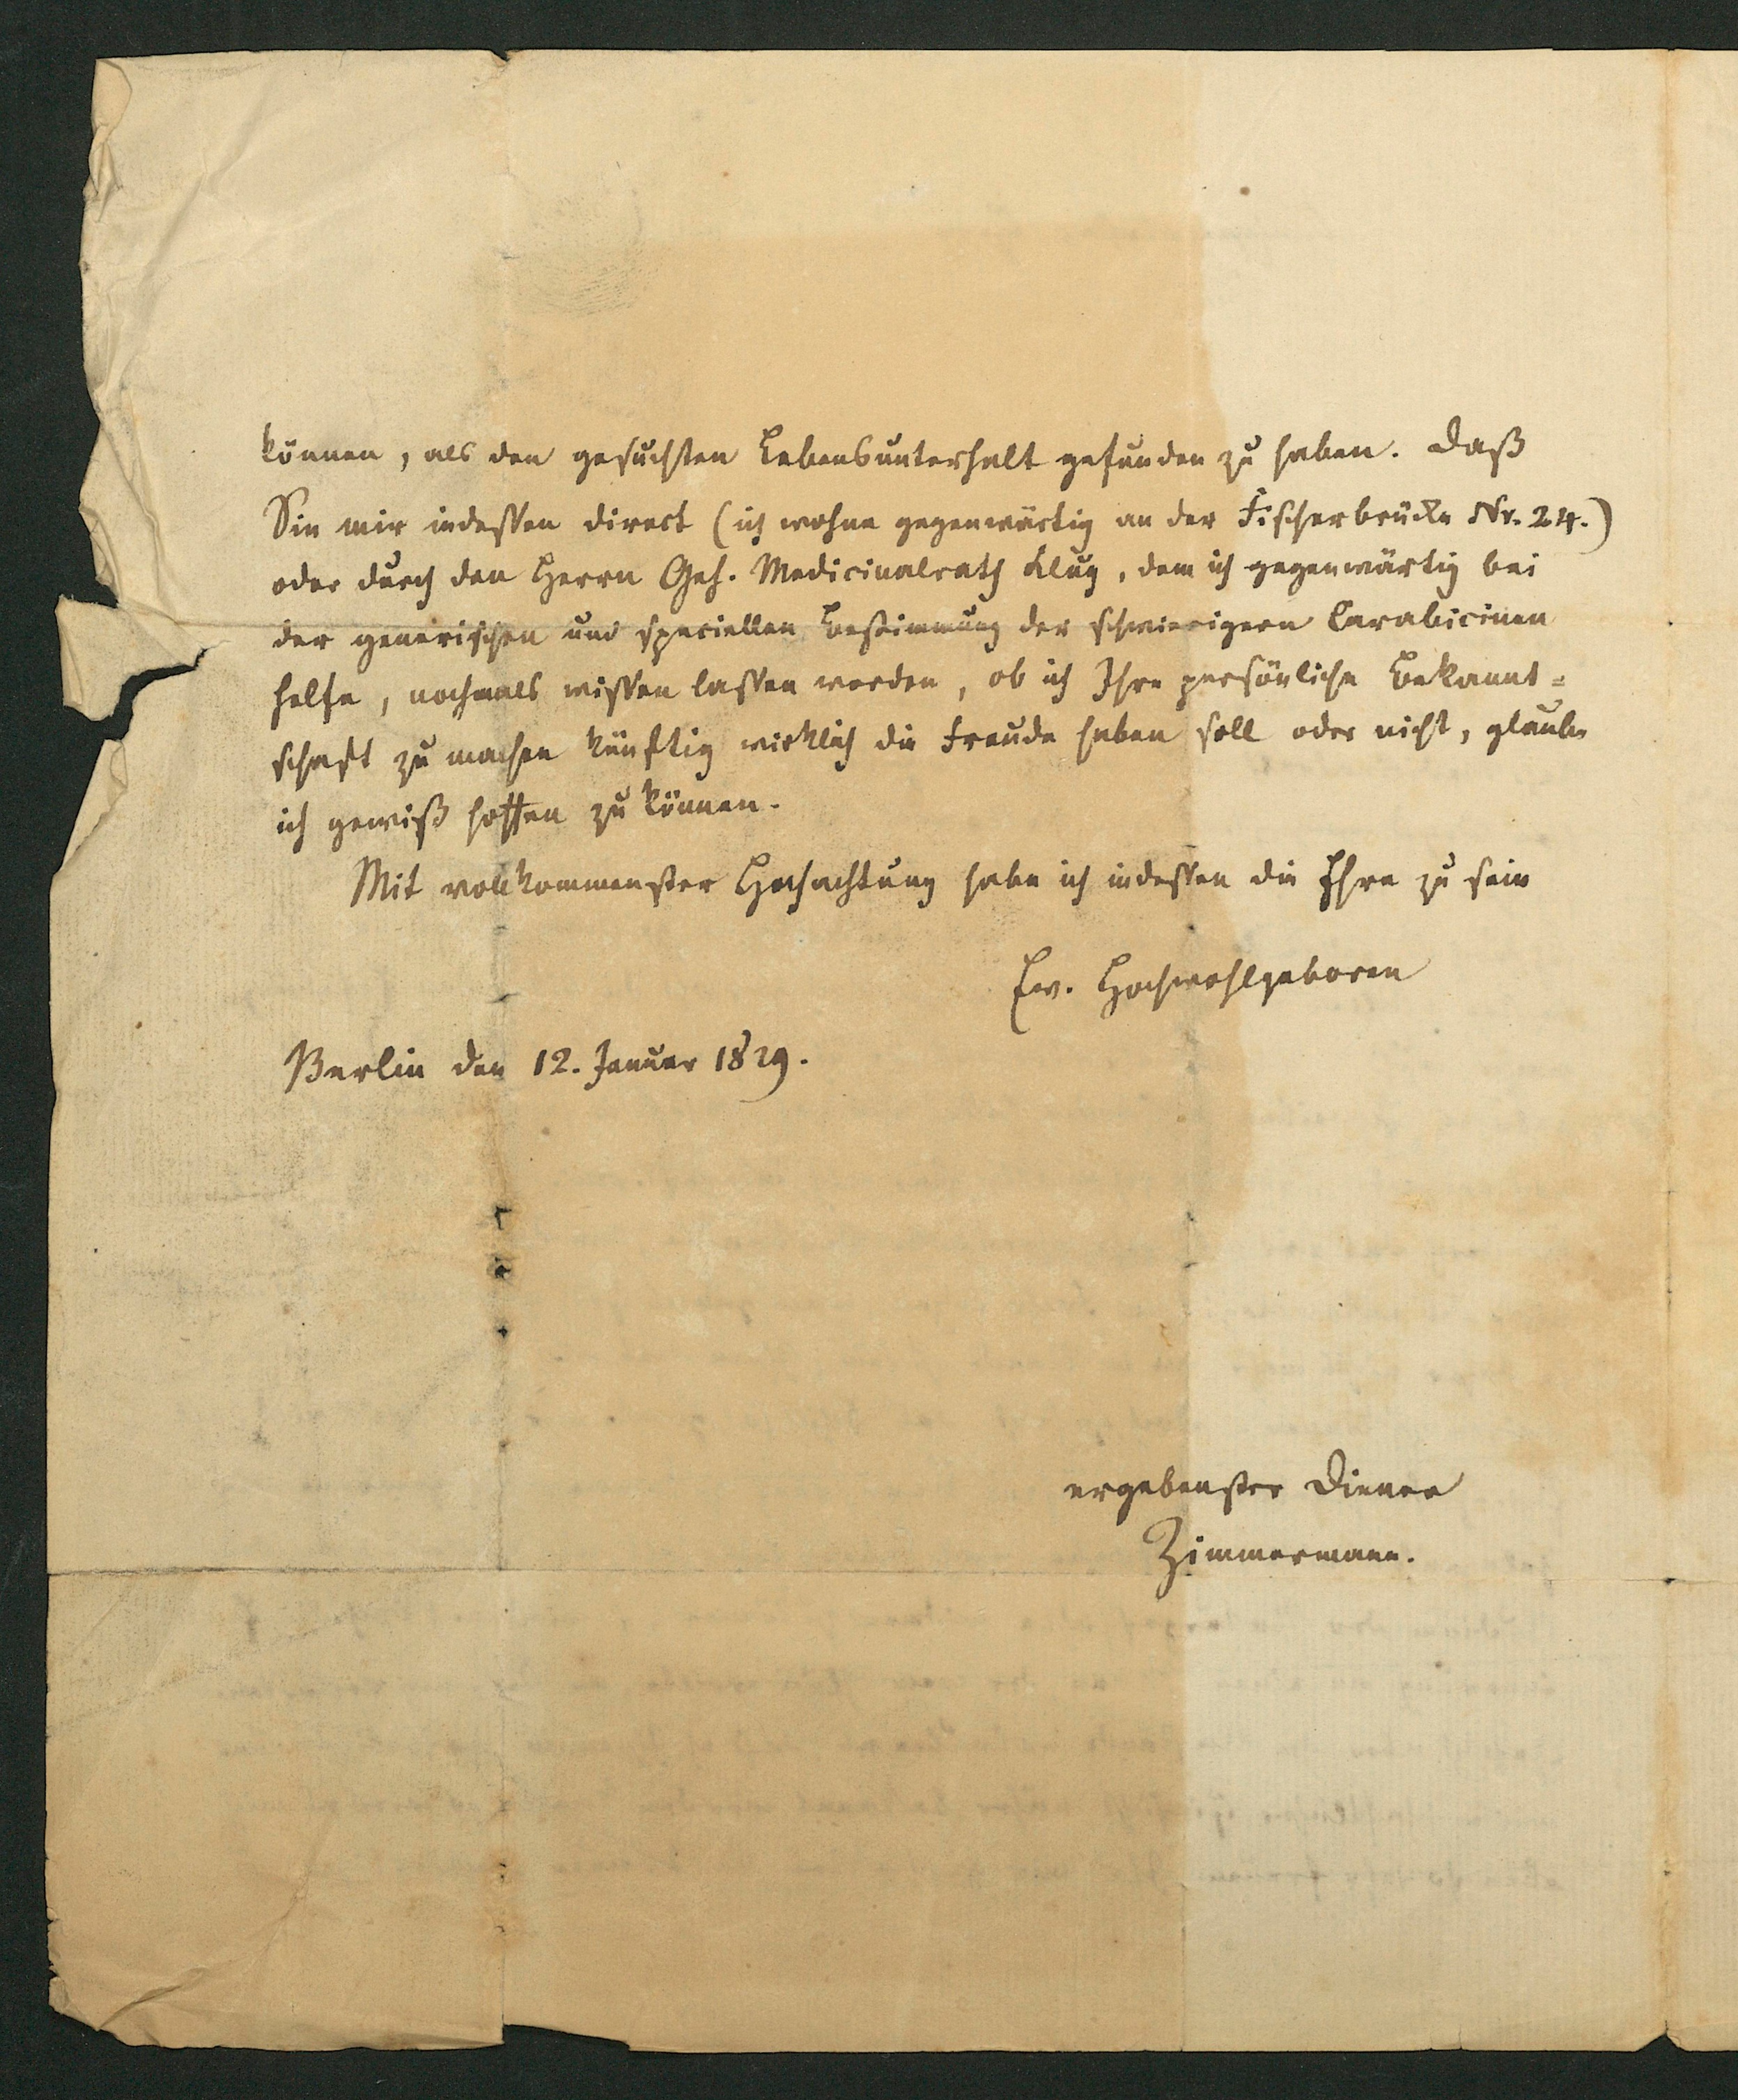 können, als den gesuchten Lebensunterhalt gefunden zu haben. Daß
Sie mir indessen direct (ich wohne gegenwärtig an der Fischerbrücke Nr. 24.)
oder durch den Herrn Geh. Medicinalrath Klug, dem ich gegenwärtig bei
der generischen und speciellen Bestimmung der schwierigern Carabicinen
helfe, nochmals wissen lassen werden, ob ich Ihre persönliche Bekannt=
schaft zu machen künftig wirklich die Freude haben soll oder nicht, glaube
ich gewiß hoffen zu können.
Mit vollkommenster Hochachtung habe ich indessen die Ehre zu sein
Ew. Hochwohlgeboren
Berlin den 12. Januar 1829.
ergebenster Diener
Zimmermann.